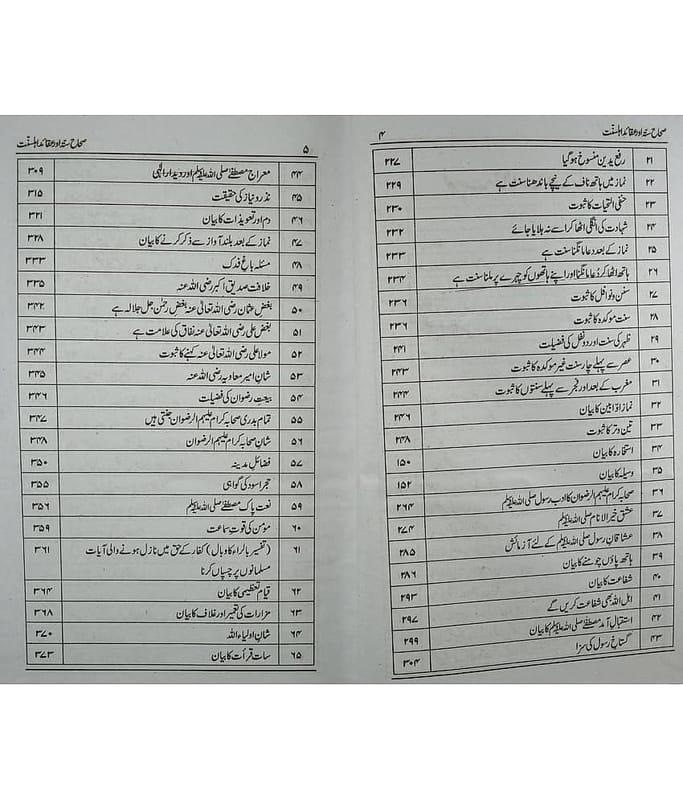 صحاح ستہ اور عقائد اہلسنت ۴
۲۱ رفع یدین منسوخ ہو گیا ۲۲۷
۲۲ نماز میں ہاتھ ناف کے نیچے باندھنا سنت ہے ۲۲۹
۲۳ حنفی التحیات کا ثبوت ۲۳۰
۲۴ شہادت کی انگلی اٹھا کر اسے نہ ہلایا جائے ۲۳۲
۲۵ نماز کے بعد دعا مانگنا سنت ہے ۲۳۳
۲۶ ہاتھ اٹھا کر دُعا مانگنا اور اپنے ہاتھوں کو چہرے پر ملنا سنت ہے ۲۳۴
۲۷ سنن و نوافل کا ثبوت ۲۳۶
۲۸ سنت موکدہ کا ثبوت ۲۳۶
۲۹ ظہر کی سنت اور دو نفل کی فضیلت ۲۴۱
۳۰ عصر سے پہلے چار سنت غیر موکدہ کا ثبوت ۲۴۳
۳۱ مغرب کے بعد اور فجر سے پہلے سنتوں کا ثبوت ۲۴۴
۳۲ نماز اوّابین کا بیان ۲۴۶
۳۳ تین وتر کا ثبوت ۲۴۸
۳۴ استخارہ کا بیان ۱۵۰
۳۵ وسیلہ کا بیان ۱۵۲
۳۶ صحابہ کرام علیہم الرضوان کا ادب رسول صلی اللہ علیہ وسلم ۲۶۴
۳۷ عشق خیر الانام صلی اللہ علیہ وسلم ۲۷۴
۳۸ عشاقانِ رسول صلی اللہ علیہ وسلم کے لئے آزمائش ۲۸۵
۳۹ ہاتھ پاؤں چومنے کا بیان ۲۸۶
۴۰ شفاعت کا بیان ۲۹۳
۴۱ اہل اللہ بھی شفاعت کریں گے ۲۹۷
۴۲ استقبال آمد مصطفےٰ صلی اللہ علیہ وسلم کا بیان ۲۹۹
۴۳ گستاخِ رسول کی سزا ۳۰۴
صحاح ستہ اور عقائد اہلسنت ۵
۴۴ معراج مصطفےٰ صلی اللہ علیہ وسلم اور دیدار الٰہی ۳۰۹
۴۵ نذر و نیاز کی حقیقت ۳۱۵
۴۶ دم اور تعویذات کا بیان ۳۲۱
۴۷ نماز کے بعد بلند آواز سے ذکر کرنے کا بیان ۳۲۸
۴۸ مسئلہ باغِ فدک ۳۳۳
۴۹ خلافت صدیق اکبر رضی اللہ عنہ ۳۳۵
۵۰ بغض عثمان رضی اللہ تعالیٰ عنہ بغض رحمٰن جل جلالہ ہے ۳۴۲
۵۱ بغض علی رضی اللہ تعالیٰ عنہ نفاق کی علامت ہے ۳۴۳
۵۲ مولا علی رضی اللہ تعالیٰ عنہ کہنے کا ثبوت ۳۴۴
۵۳ شانِ امیر معاویہ رضی اللہ عنہ ۳۴۵
۵۴ بیعتِ رضوان کی فضیلت ۳۴۶
۵۵ تمام بدری صحابہ کرام علیہم الرضوان جنتی ہیں ۳۴۷
۵۶ شانِ صحابہ کرام علیہم الرضوان ۳۴۸
۵۷ فضائل مدینہ ۳۵۰
۵۸ حجر اسود کی گواہی ۳۵۵
۵۹ نعت پاک مصطفےٰ صلی اللہ علیہ وسلم ۳۵۶
۶۰ مؤمن کی قوتِ سماعت ۳۵۹
۶۱ (تفسیر بالراء کا وبال) کفار کے حق میں نازل ہونے والی آیات ۳۶۱
مسلمانوں پر چسپاں کرنا
۶۲ قیام تعظیمی کا بیان ۳۶۴
۶۳ مزارات کی تعمیر اور غلاف کا بیان ۳۶۸
۶۴ شانِ اولیاء اللہ ۳۷۰
۶۵ سات قرأت کا بیان ۳۷۳